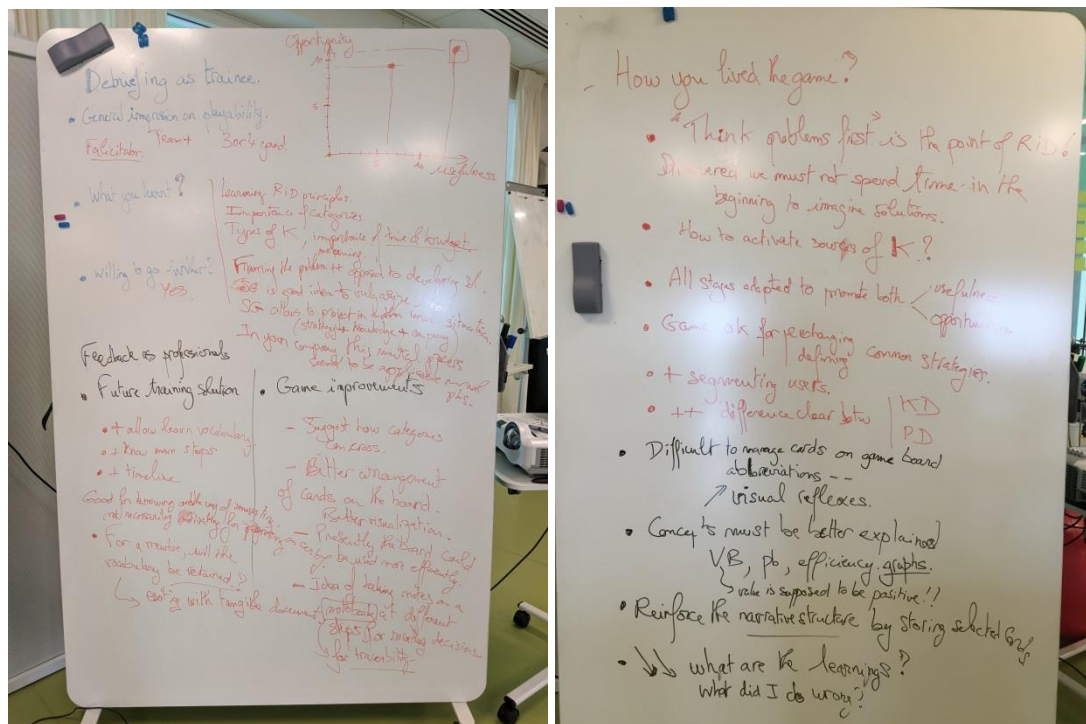 Debriefing as trainee.
• General impression on playability.
Falicitator Team+ 3 or 4 good.
Opportunity
10
5
5
10
usefulness
• What you learnt?
Learning RID principles.
Importance of categories
Types of K, importance of time & budget
meaning
• Willing to go further?
Yes.
Framing the problem ++ opposed to developing sol.
is good idea to
SG allows to project in situation
(strategy + knowledge + company)
In your company this mental process
seems to be applicable
Feedback as professionals
• Future training solution
• + allow learn vocabulary
• + know main steps
• + timeline
Good for knowing
not necessarily for
• For a novice, will the
vocabulary be retained?
↳ exiting with tangible document
• Game improvements
- Suggest how categories
can cross.
- Better arrangement
of cards on the board.
Better visualization.
- Presently the board could
be used more efficiently.
- Idea of taking notes on a
(notebook) at different
steps for scoring decisions
for traceability
- How you lived the game?
• "Think problems first" is the point of RID!
Discovered we must not spend time in the
beginning to imagine solutions.
• How to activate sources of K?
• All stages adapted to promote both
usefulness
opportunities
• Game ok for exchanging
defining
common strategies.
• + segmenting users.
• ++ difference clear betw
KD
PD
• Difficult to manage cards on game board
abbreviations --
↗ visual reflexes.
• Concepts must be better explained
VB, pb, efficiency graphs.
value is supposed to be positive!?
• Reinforce the narrative structure by storing selected cards
• ↓↓ what are the learnings?
What did I do wrong?